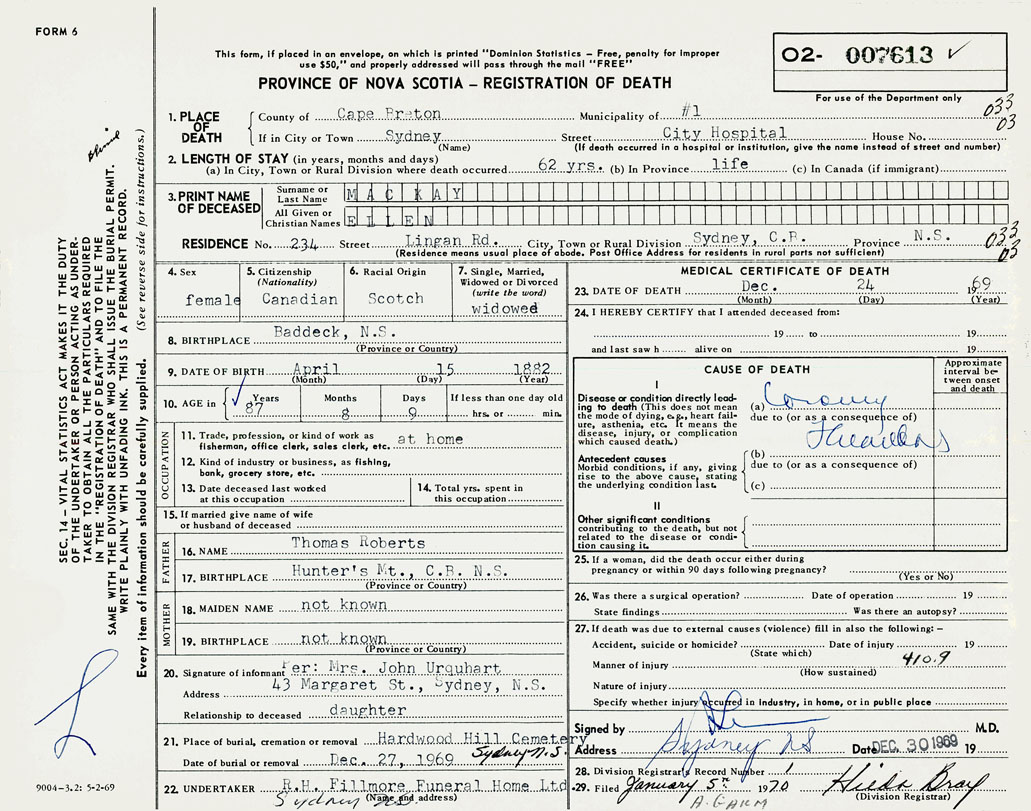 FORM 6
This form, if placed in an envelope, on which is printed "Dominion Statistics – Free, penalty for improper
use $50," and properly addressed will pass through the mail "FREE"
PROVINCE OF NOVA SCOTIA – REGISTRATION OF DEATH
02- 007613 ✓
For use of the Department only
033
03
1. PLACE OF DEATH
County of Cape Breton Municipality of #1
If in City or Town Sydney Street City Hospital House No.
(Name) (If death occurred in a hospital or institution, give the name instead of street and number)
2. LENGTH OF STAY (in years, months and days)
(a) In City, Town or Rural Division where death occurred 62 yrs. (b) In Province life (c) In Canada (if immigrant)
3. PRINT NAME OF DECEASED
Surname or Last Name MACKAY
All Given or Christian Names ELLEN
RESIDENCE No. 234 Street Lingan Rd. City, Town or Rural Division Sydney, C.B. Province N.S.
(Residence means usual place of abode. Post Office Address for residents in rural parts not sufficient)
033
03
4. Sex
female
5. Citizenship
(Nationality)
Canadian
6. Racial Origin
Scotch
7. Single, Married,
Widowed or Divorced
(write the word)
widowed
8. BIRTHPLACE Baddeck, N.S.
(Province or Country)
9. DATE OF BIRTH April 15 1882
(Month) (Day) (Year)
10. AGE in ✓ Years Months Days If less than one day old
87 8 9 hrs. or min.
OCCUPATION
11. Trade, profession, or kind of work as
fisherman, office clerk, sales clerk, etc. at home
12. Kind of industry or business, as fishing,
bank, grocery store, etc.
13. Date deceased last worked
at this occupation
14. Total yrs. spent in
this occupation
15. If married give name of wife
or husband of deceased
FATHER
16. NAME Thomas Roberts
17. BIRTHPLACE Hunter's Mt., C.B. N.S.
(Province or Country)
MOTHER
18. MAIDEN NAME not known
19. BIRTHPLACE not known
(Province or Country)
20. Signature of informant Per: Mrs. John Urquhart
Address 43 Margaret St., Sydney, N.S.
Relationship to deceased daughter
21. Place of burial, cremation or removal Hardwood Hill Cemetery
Sydney N.S.
Date of burial or removal Dec. 27, 1969
22. UNDERTAKER R.H. Fillmore Funeral Home Ltd
(Name and address)
Sydney NS
MEDICAL CERTIFICATE OF DEATH
23. DATE OF DEATH Dec. 24 1969
(Month) (Day) (Year)
24. I HEREBY CERTIFY that I attended deceased from:
19 to 19
and last saw h alive on 19
CAUSE OF DEATH
Approximate
interval be-
tween onset
and death
I
Disease or condition directly lead-
ing to death (This does not mean
the mode of dying, e.g., heart fail-
ure, asthenia, etc. It means the
disease, injury, or complication
which caused death.)
(a) Coronary
due to (or as a consequence of)
Thrombos
Antecedent causes
Morbid conditions, if any, giving
rise to the above cause, stating
the underlying condition last.
(b)
due to (or as a consequence of)
(c)
II
Other significant conditions
contributing to the death, but not
related to the disease or condi-
tion causing it.
25. If a woman, did the death occur either during
pregnancy or within 90 days following pregnancy?
(Yes or No)
26. Was there a surgical operation? Date of operation 19
State findings Was there an autopsy?
27. If death was due to external causes (violence) fill in also the following: –
Accident, suicide or homicide? Date of injury 19
(State which)
Manner of injury 410.9
(How sustained)
Nature of injury
Specify whether injury occurred in industry, in home, or in public place
Signed by M.D.
Address Sydney NS Date DEC 30 1969 19
28. Division Registrar's Record Number 1
29. Filed January 5th 1970 Hilda Bray
(Division Registrar)
SEC. 14 – VITAL STATISTICS ACT MAKES IT THE DUTY
OF THE UNDERTAKER OR PERSON ACTING AS UNDER-
TAKER TO OBTAIN ALL THE PARTICULARS REQUIRED
IN THE "REGISTRATION OF DEATH" AND TO FILE THE
SAME WITH THE DIVISION REGISTRAR WHO SHALL ISSUE THE BURIAL PERMIT.
WRITE PLAINLY WITH UNFADING INK. THIS IS A PERMANENT RECORD.
Every item of information should be carefully supplied. (See reverse side for instructions.)
9004–3.2: 5-2-69